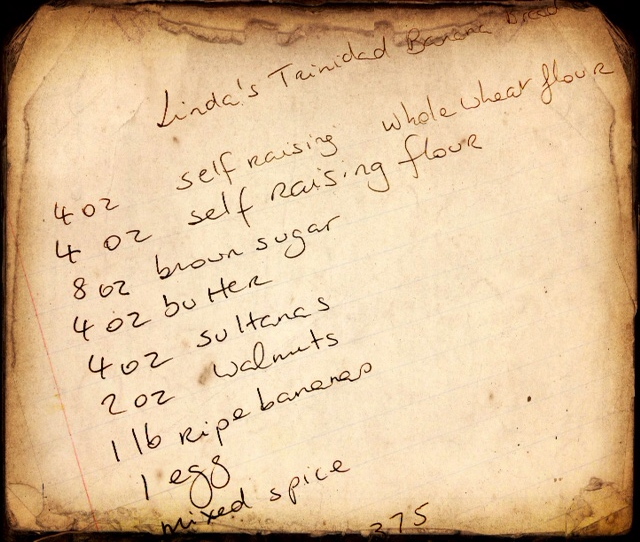 Linda's Trinidad Banana Bread
4 oz self raising wholewheat flour
4 oz self raising flour
8 oz brown sugar
4 oz butter
4 oz sultanas
2 oz walnuts
1 lb ripe bananas
1 egg
mixed spice
375